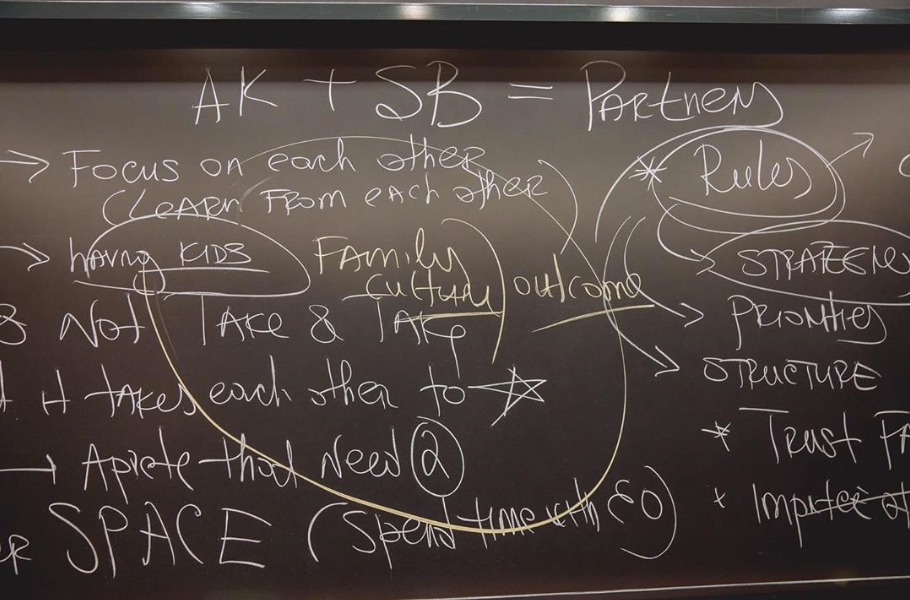 AK + SB = Partners
→ Focus on each other
(LEARN From each other
* Rules
→ having KIDS
Family
Culture
outcome
→ STRATEGY
→ Priorities
& Not Take & Take
→ STRUCTURE
it takes each other to ☆
* Trust
→ that Need 2
SPACE (Spend time with EO)